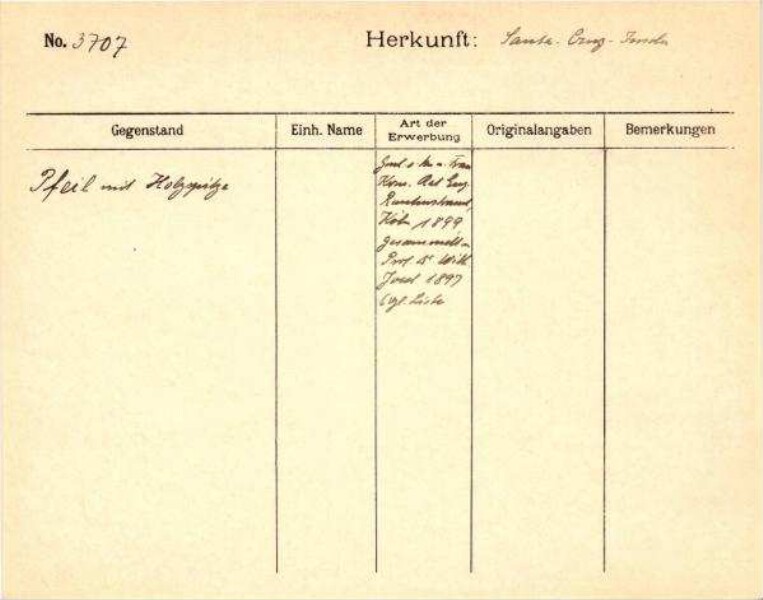 No. 3707
Herkunft: Santa-Cruz-Inseln
Gegenstand
Einh. Name
Art der Erwerbung
Originalangaben
Bemerkungen
Pfeil mit Holzspitze
Frau
Köln 1899
gesammelt v.
Prof. Dr Wilh.
Joest 1897
vgl. Liste